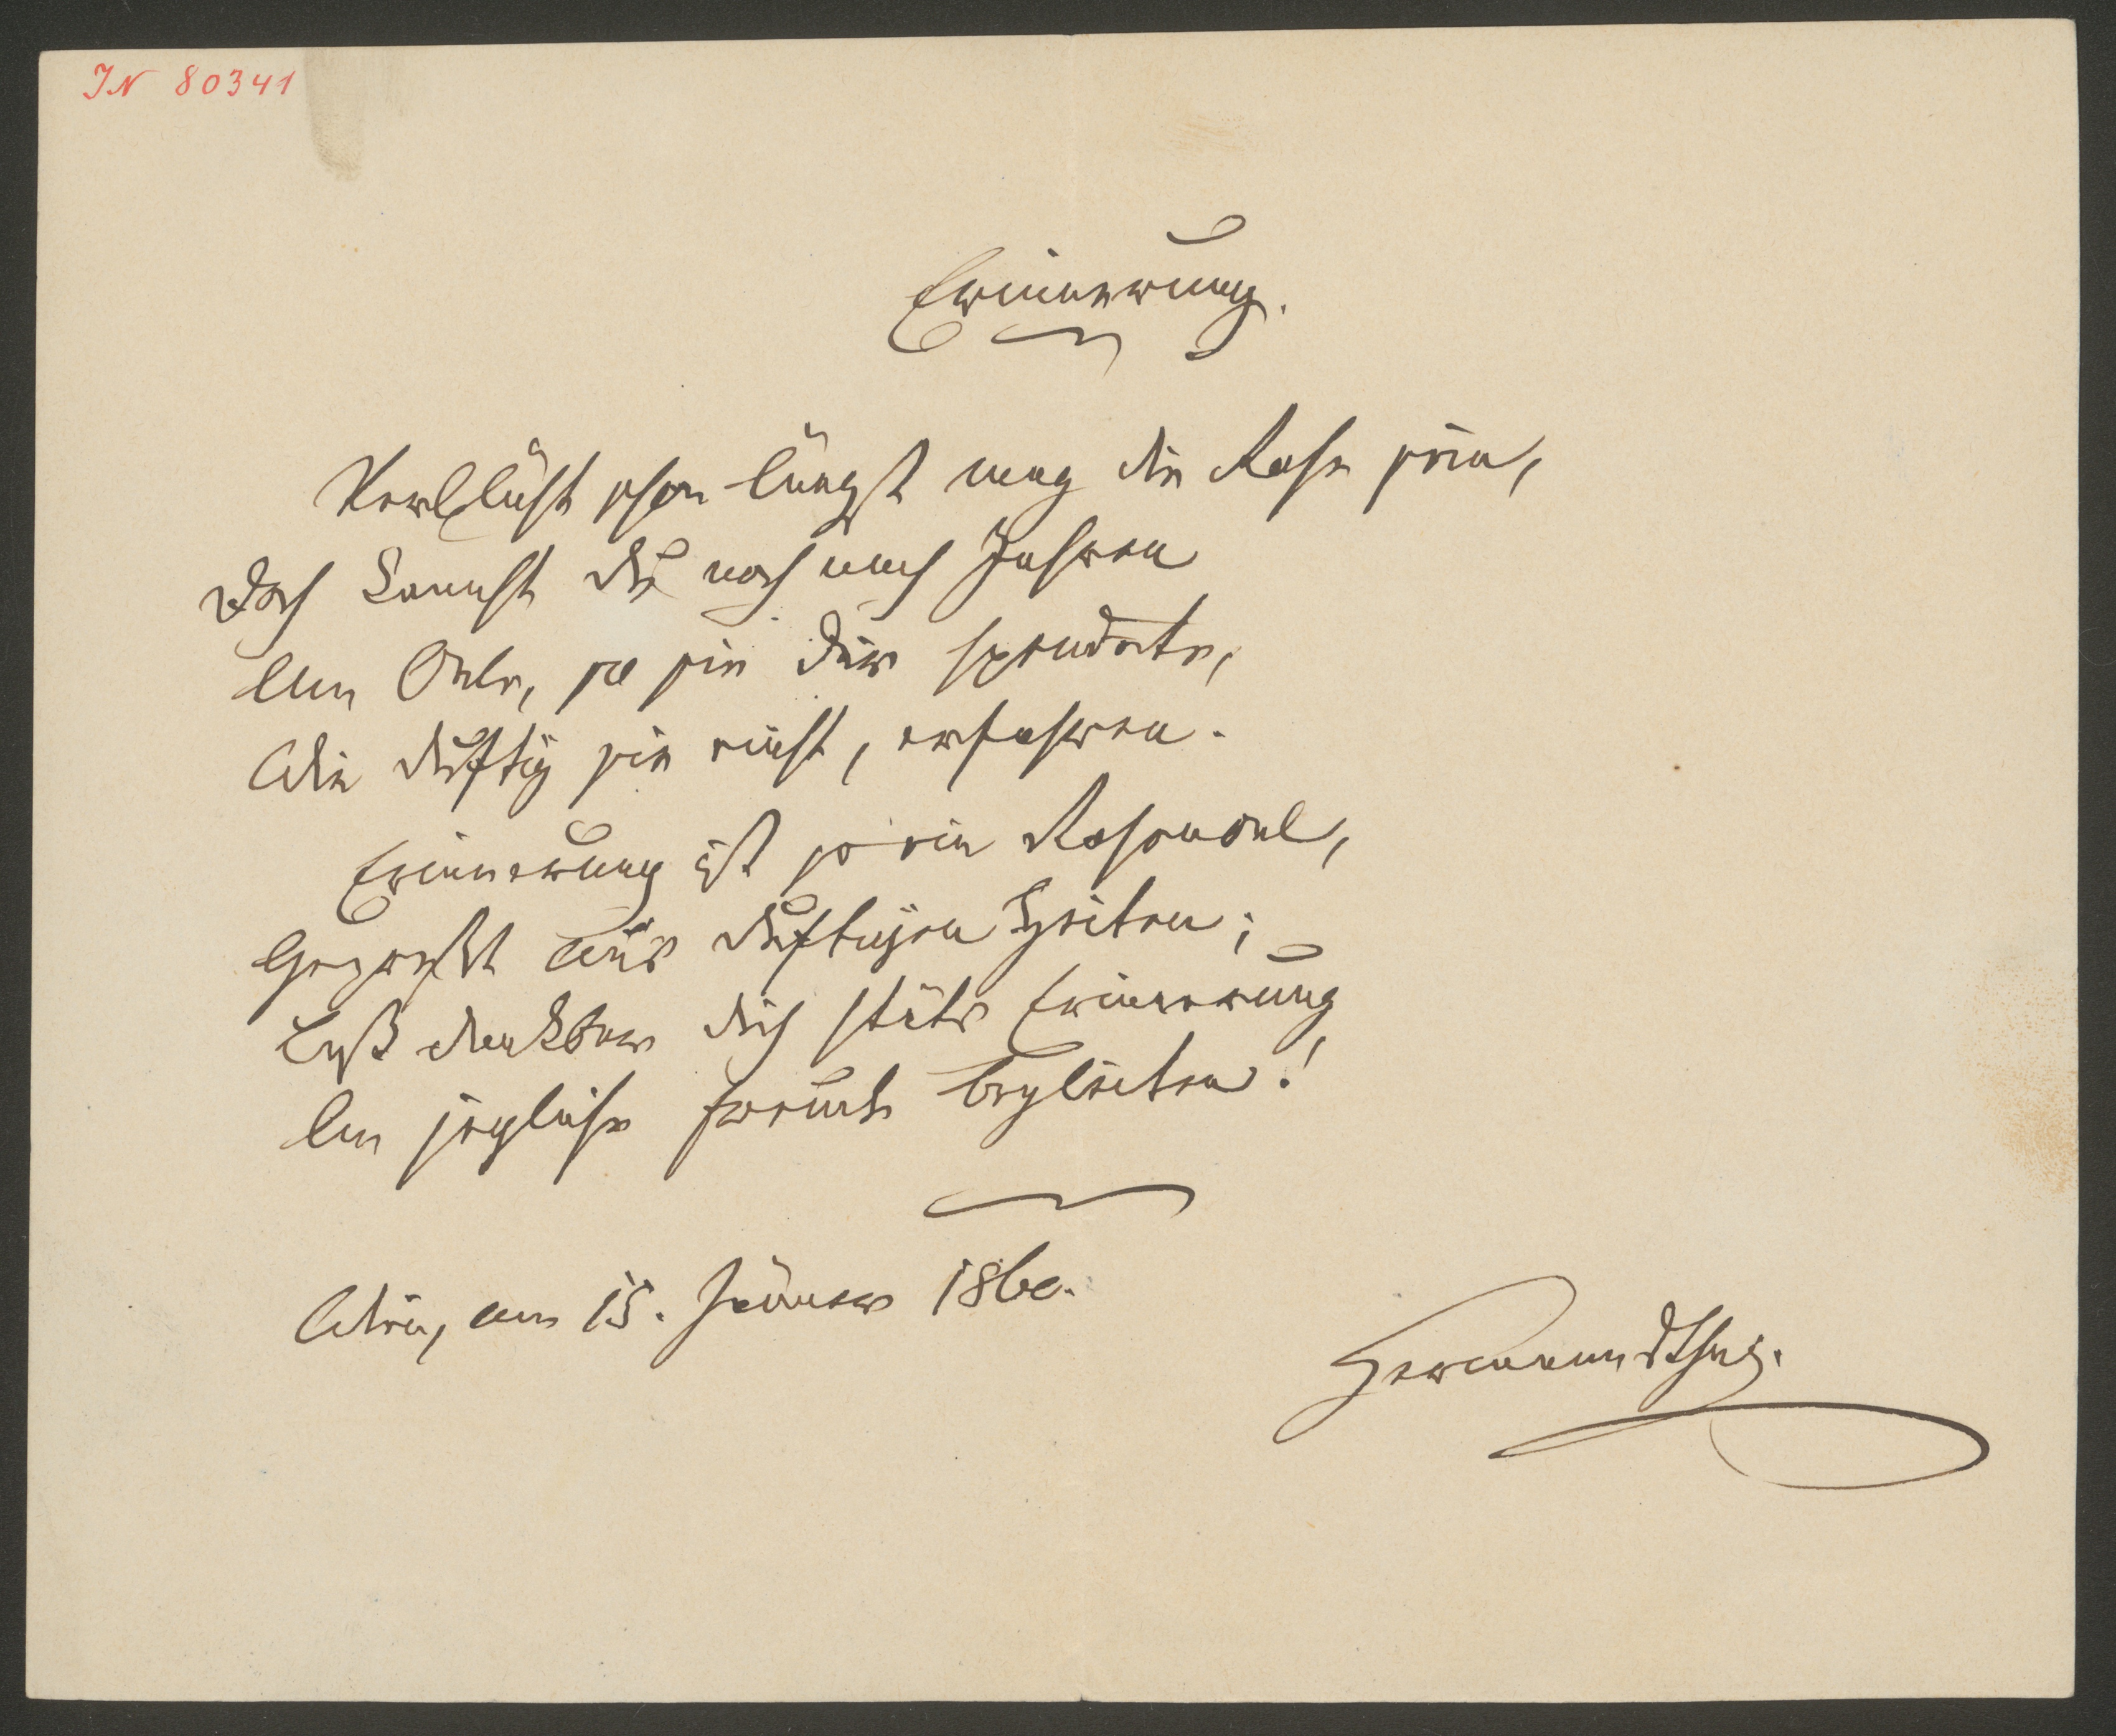 IN 80341
Erinnerung.
Verblüht schon längst mag die Rose sein,
Doch kannst du noch nach Jahren
Am Oele, so sie dir spendete,
Wie duftig sie einst, erfahren.
Erinnerung ist so ein Rosenoel,
Gepreßt aus duftigen Zeiten;
Laß dankbar dich stäts Erinnerung
An jegliche Freude begleiten!
Wien, am 15. Jänner 1860.
Hermann